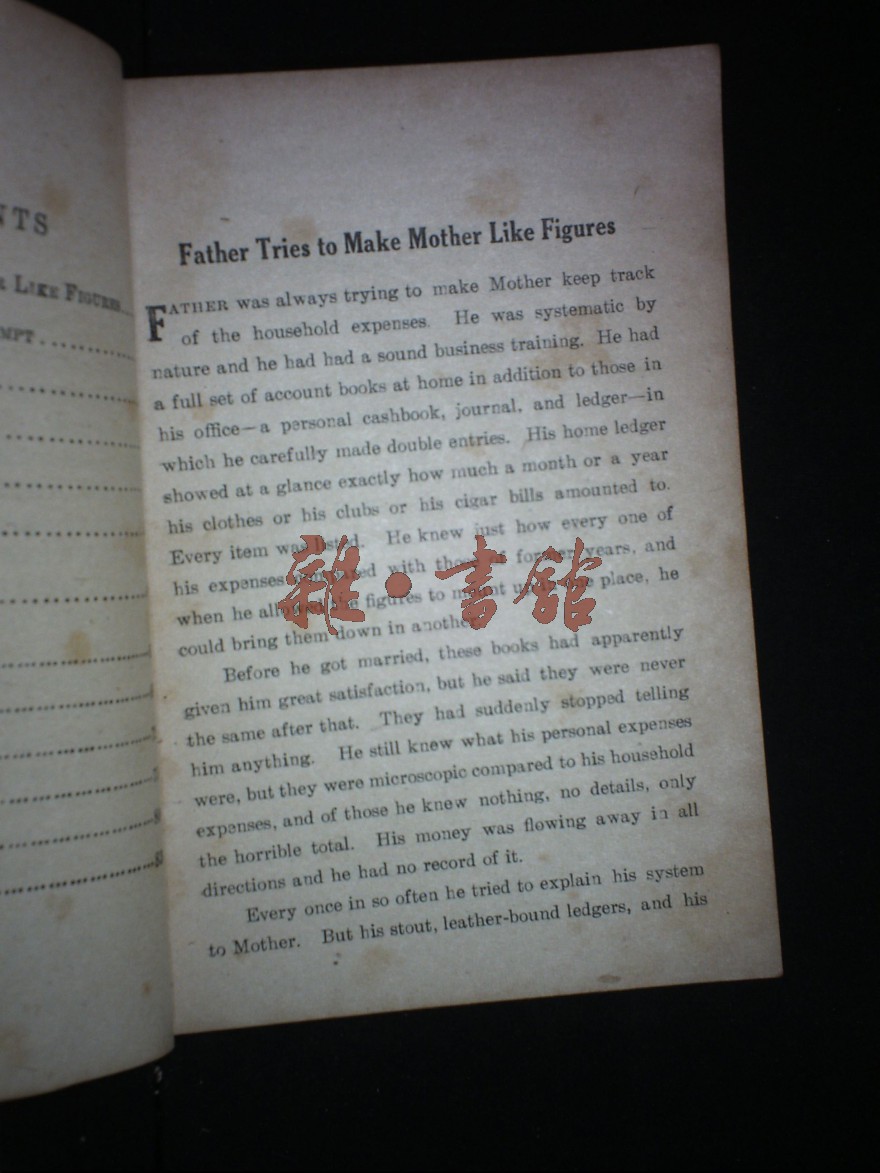 NTS
R LIKE FIGURES
MPT
Father Tries to Make Mother Like Figures
FATHER was always trying to make Mother keep track
of the household expenses. He was systematic by
nature and he had had a sound business training. He had
a full set of account books at home in addition to those in
his office—a personal cashbook, journal, and ledger—in
which he carefully made double entries. His home ledger
showed at a glance exactly how much a month or a year
his clothes or his clubs or his cigar bills amounted to.
Every item was listed. He knew just how every one of
his expenses compared with those of former years, and
when he allowed the figures to mount up in one place, he
could bring them down in another.
雜•書館
Before he got married, these books had apparently
given him great satisfaction, but he said they were never
the same after that. They had suddenly stopped telling
him anything. He still knew what his personal expenses
were, but they were microscopic compared to his household
expenses, and of those he knew nothing, no details, only
the horrible total. His money was flowing away in all
directions and he had no record of it.
Every once in so often he tried to explain his system
to Mother. But his stout, leather-bound ledgers, and his